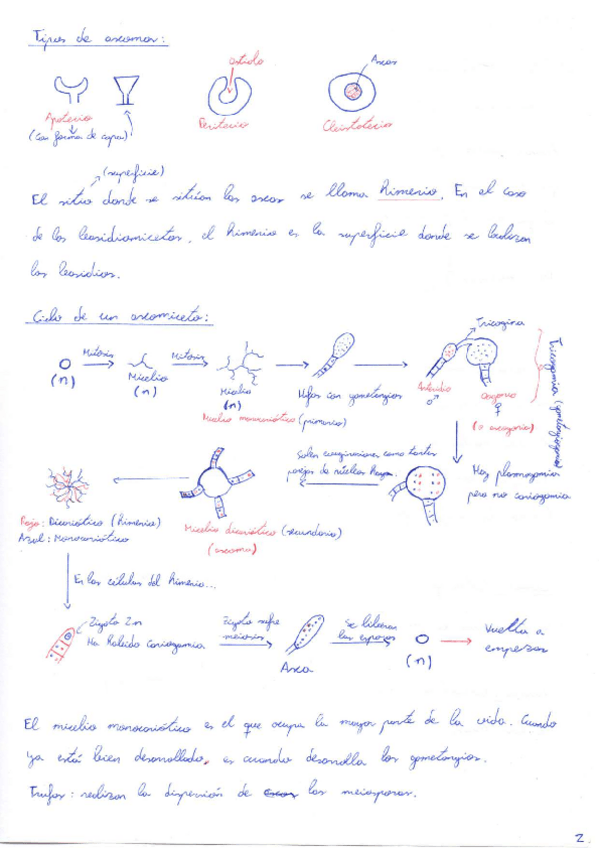 Tipos de ascomas:
ostíolo
Ascas
Apotecio
(Con forma de copa)
Peritecio
Cleistotecio
(superficie)
El sitio donde se sitúan las ascas se llama himenio. En el caso
de los basidiomicetos, el himenio es la superficie donde se localizan
los basidios.
Ciclo de un ascomiceto:
(n)
Mitosis
Micelio
(n)
Mitosis
Micelio
(n)
Micelio monocariótico (primario)
Hifas con gametangios
Tricogina
Anteridio
♂
Oogonio
♀
(o ascogonio)
Tricogamia (gametangiogamia)
Hay plasmogamia
pero no cariogamia
Salen ramificaciones como tantas
parejas de núcleos haya.
Micelio dicariótico (secundario)
(ascoma)
Rojo: Dicariótico (himenio)
Azul: Monocariótico
En las células del himenio...
Zigoto 2n
Ha habido cariogamia
Zigoto sufre
meiosis
Asca
Se liberan
las esporas
(n)
Vuelta a
empezar
El micelio monocariótico es el que ocupa la mayor parte de la vida. Cuando
ya está bien desarrollado, es cuando desarrolla los gametangios.
Trufas: realizan la dispersión de las meiosporas.
2